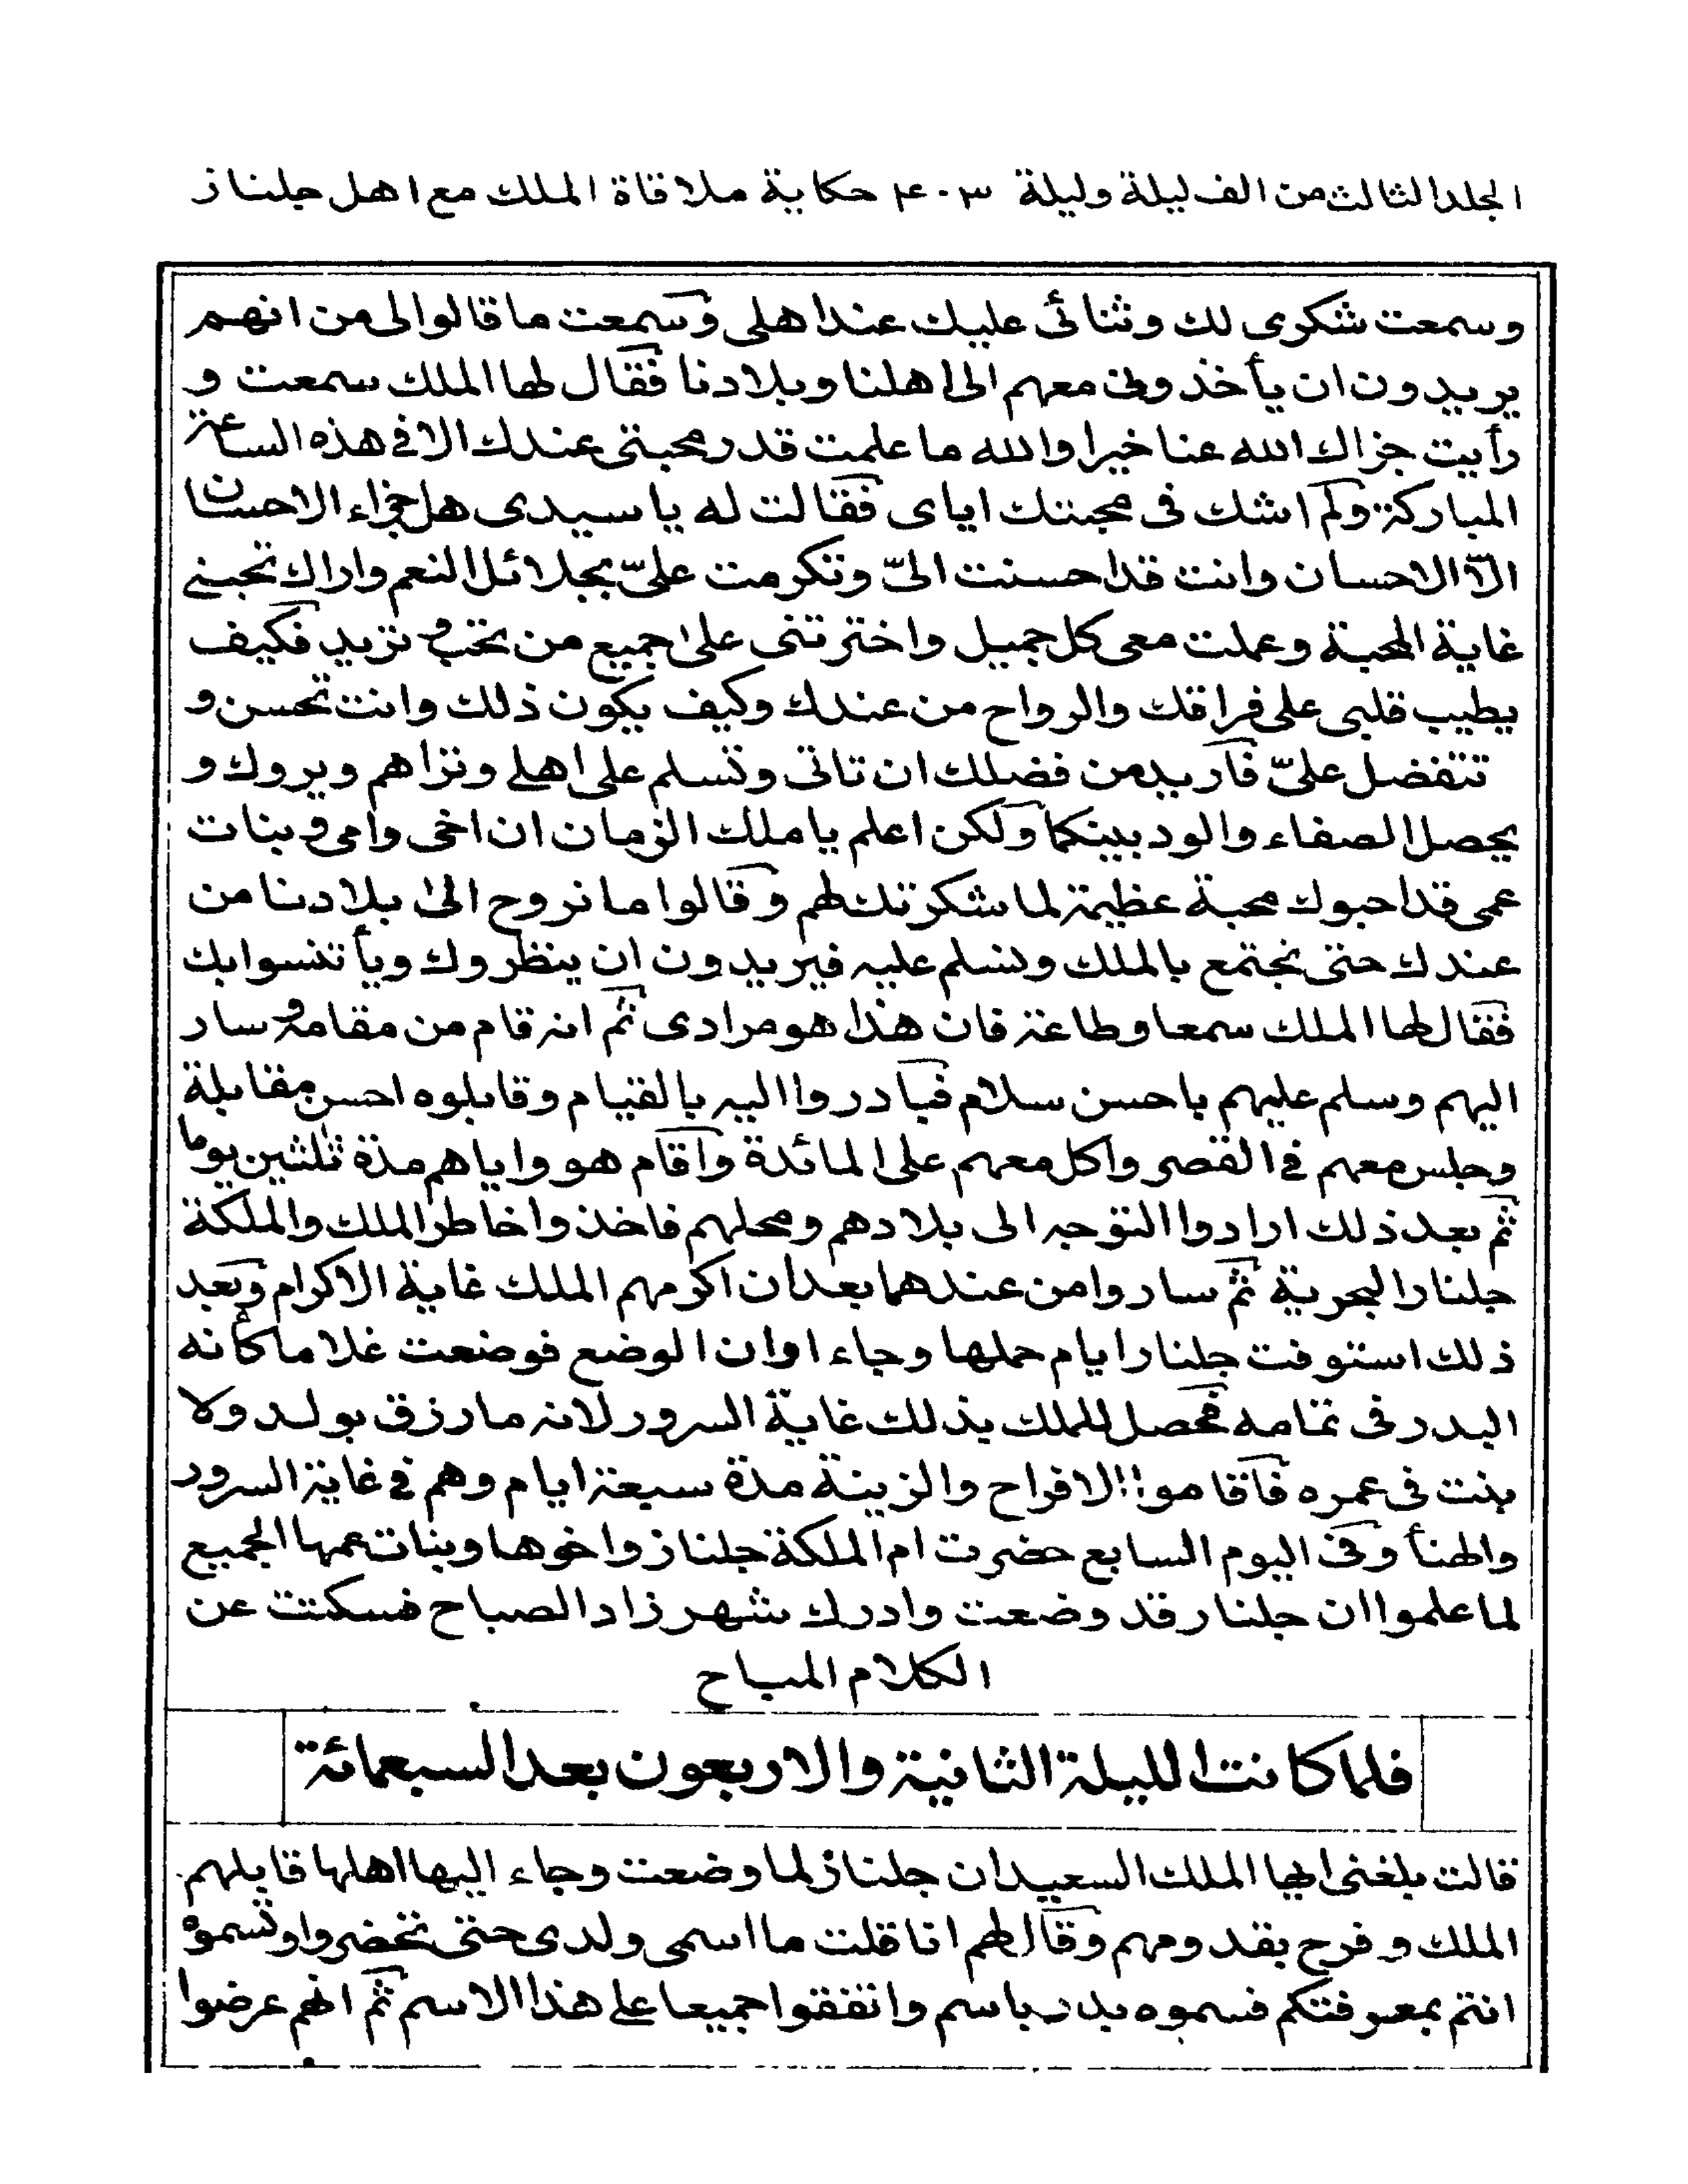 المجلد الثالث من الف ليلة وليلة ٤٠٣ حكاية ملاقاة الملك مع اهل جلناز
وسمعت شكرى لك وثنائى عليك عند اهلى وسمعت ما قالوا لى من انهم
يريدون ان يأخذونى معهم الى اهلنا وبلادنا فقال لها الملك سمعت و
رأيت جزاك الله عنا خيرا والله ما علمت قدر محبتى عندك الا فى هذه الساعة
المباركة ولم اشك فى محبتك اياى فقالت له يا سيدى هل جزاء الاحسان
الّا الاحسان وانت قد احسنت الىّ وتكرمت علىّ بجلائل النعم واراك تحبنى
غاية المحبة وعملت معى كل جميل واخترتنى على جميع من تحب و تريد فكيف
يطيب قلبى على فراقك والرواح من عندك وكيف يكون ذلك وانت تحسن و
تتفضل علىّ فاريد من فضلك ان تاتى وتسلم على اهلى وتراهم ويروك و
يحصل الصفاء والود بينكما ولكن اعلم يا ملك الزمان ان اخى وامى و بنات
عمى قد احبوك محبة عظيمة لما شكرتك لهم وقالوا ما نروح الى بلادنا من
عندك حتى نجتمع بالملك ونسلم عليه فيريدون ان ينظروك ويأتنسوا بك
فقال لها الملك سمعا وطاعة فان هذا هو مرادى ثم انه قام من مقامه و سار
اليهم وسلم عليهم باحسن سلام فبادروا اليه بالقيام وقابلوه احسن مقابلة
وجلس معهم فى القصر واكل معهم على المائدة واقام هو واياهم مدة ثلثين يوما
ثم بعد ذلك ارادوا التوجه الى بلادهم ومحلهم فاخذوا خاطر الملك والملكة
جلنار البحرية ثم ساروا من عندهما بعد ان اكرمهم الملك غاية الاكرام وبعد
ذلك استوفت جلنار ايام حملها وجاء اوان الوضع فوضعت غلاما كأنه
البدر فى تمامه فحصل للملك بذلك غاية السرور لانه ما رزق بولد ولا
بنت فى عمره فاقاموا الافراح والزينة مدة سبعة ايام وهم فى غاية السرور
والهنأ وفى اليوم السابع حضرت ام الملكة جلناز واخوها وبنات عمها الجميع
لما علموا ان جلنار قد وضعت وادرك شهرزاد الصباح فسكتت عن
الكلام المباح
فلما كانت الليلة الثانية والاربعون بعد السبعمائة
قالت بلغنى ايها الملك السعيد ان جلناز لما وضعت وجاء اليها اهلها قابلهم
الملك و فرح بقدومهم وقال لهم انا قلت ما اسمى ولدى حتى تحضروا وتسموه
انتم بمعرفتكم فسموه بدر باسم واتفقوا جميعا على هذا الاسم ثم انهم عرضوا